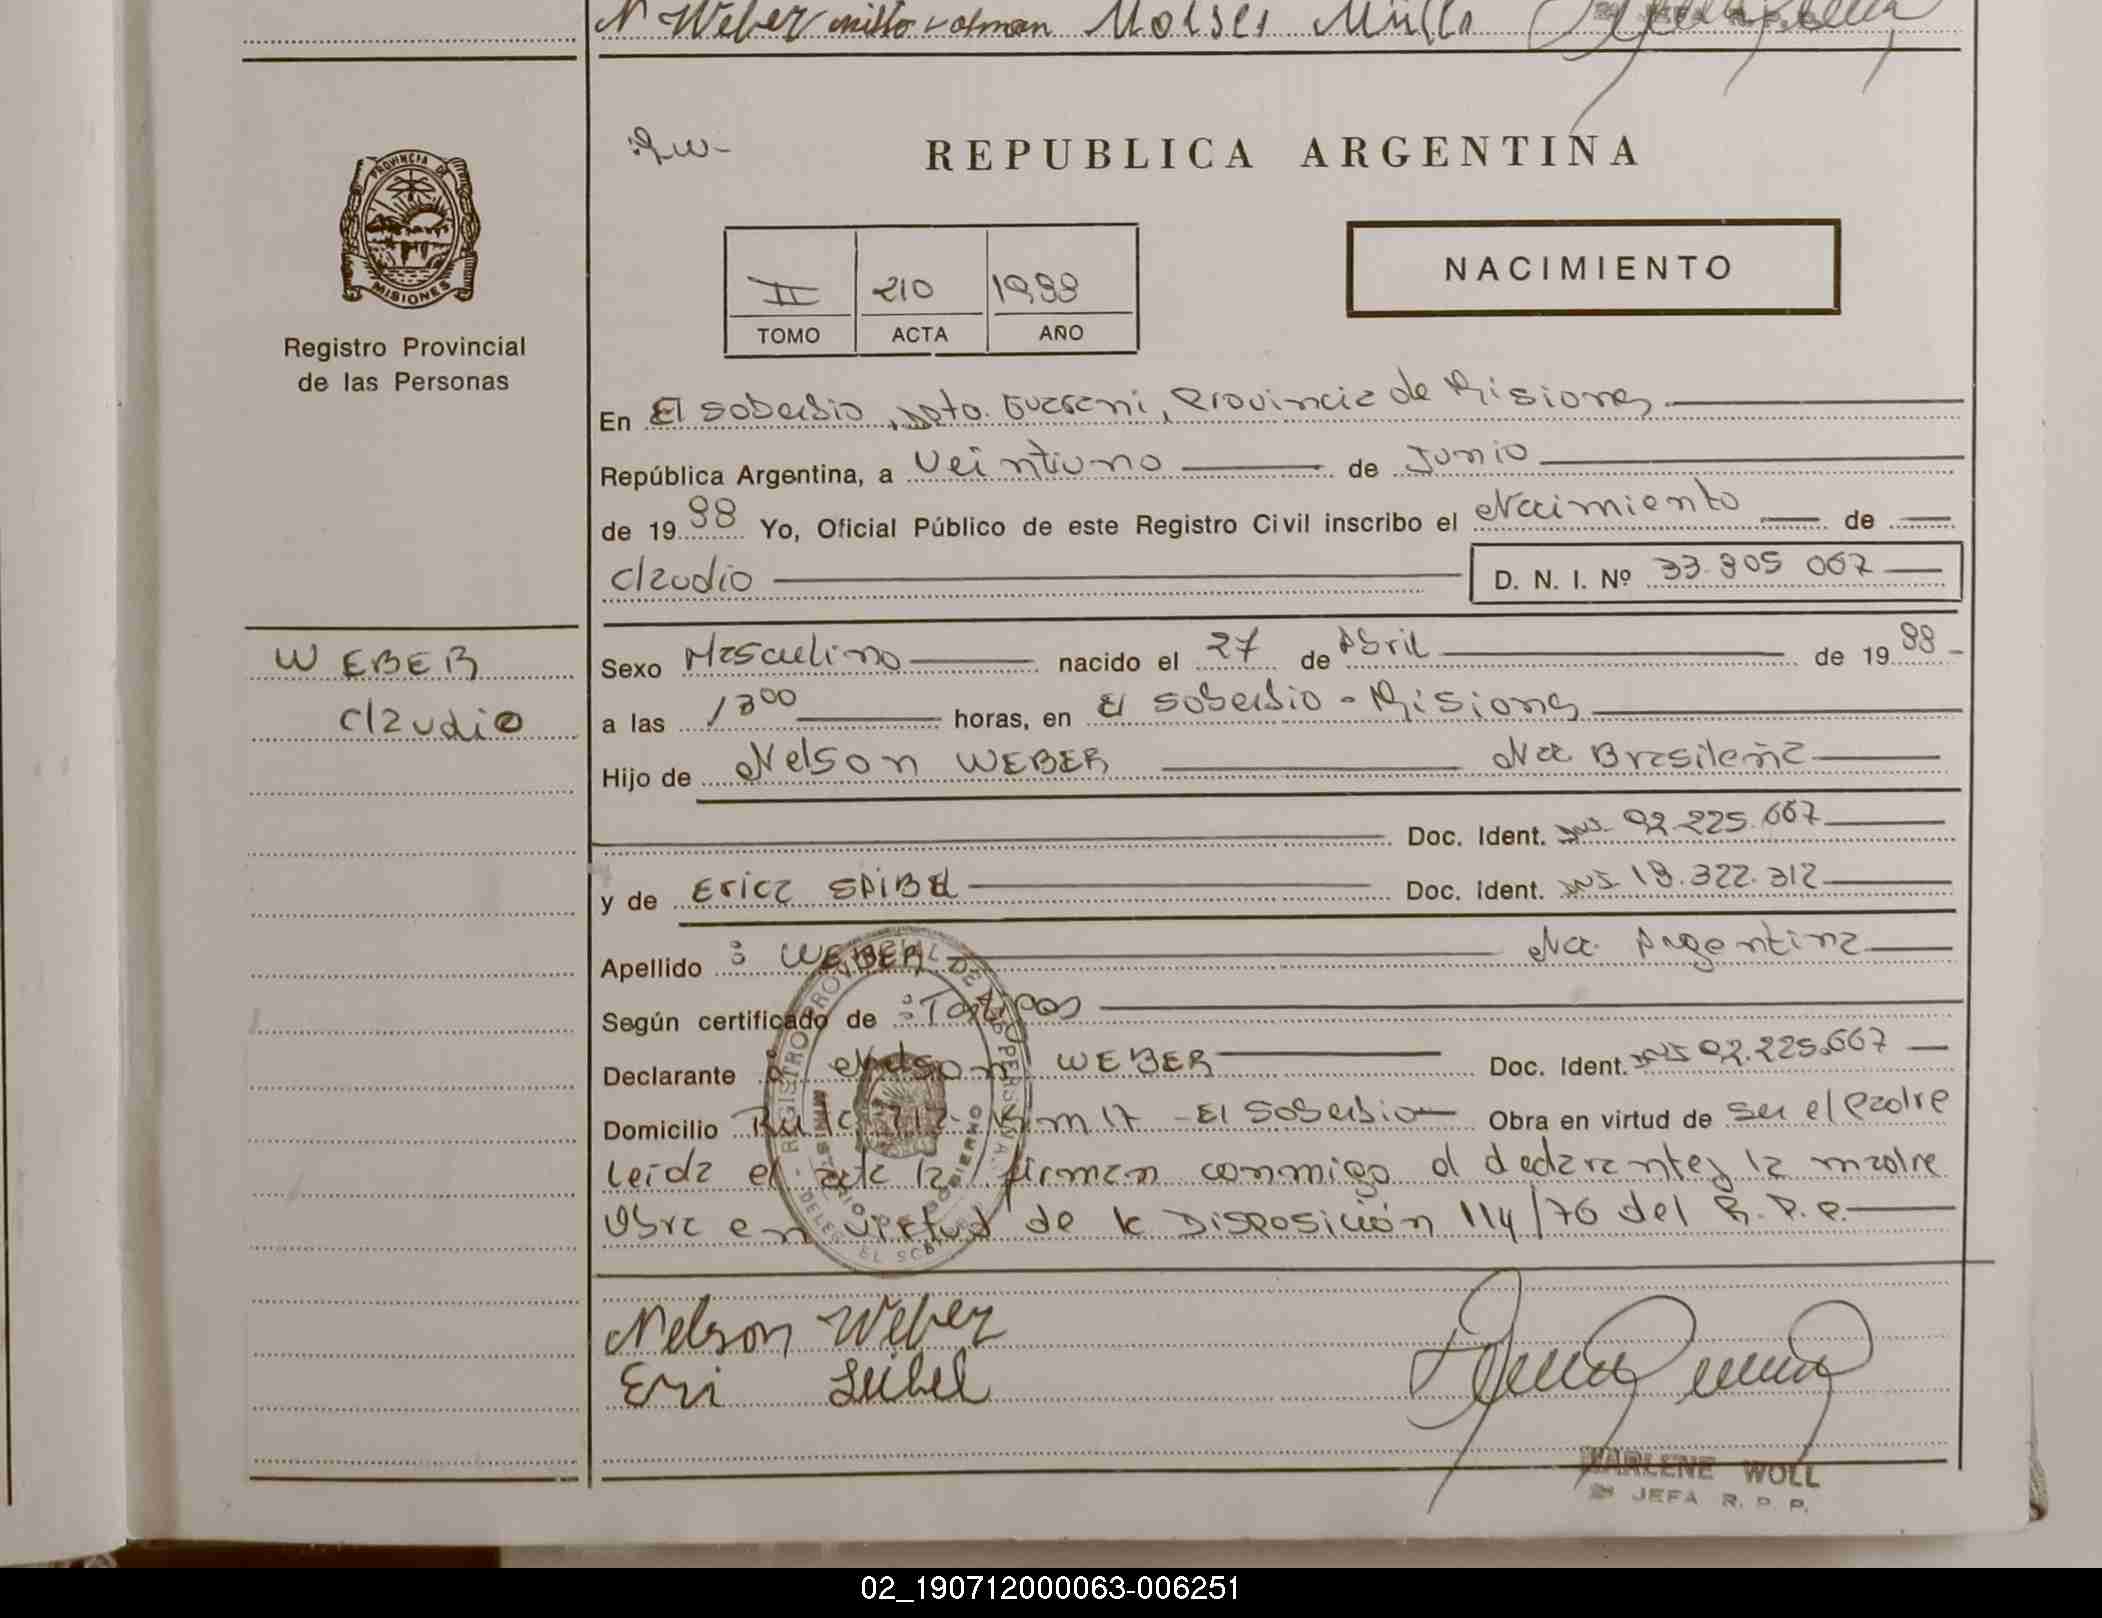 N Weber Moises
PROVINCIA DE
MISIONES
Registro Provincial
de las Personas
REPUBLICA ARGENTINA
II 210 1988
TOMO ACTA AÑO
NACIMIENTO
En El soberbio, Dpto. Guarani, Provincia de Misiones
República Argentina, a Veintiuno de Junio
de 1988 Yo, Oficial Público de este Registro Civil inscribo el Nacimiento de
Claudio D. N. I. Nº 33.805 067
WEBER
Claudio
Sexo Masculino nacido el 27 de Abril de 1988
a las horas, en El Soberbio - Misiones
Hijo de Nelson WEBER Nac Brasileña
Doc. Ident. DNI 92.225.667
y de Erica SEIBEL Doc. Ident. DNI 18.322.312
Apellido : WEBER Nac. Argentina
Según certificado de : Testigos
Declarante : Nelson WEBER Doc. Ident. DNI 92.225.667
Domicilio Ruta 212 Km 17 - El Soberbio Obra en virtud de ser el padre
Leida el acta la firman conmigo el declarante y la madre
Obra en virtud de la Disposición 114/76 del R. P. P.
Nelson Weber
Eri Seibel
MARLENE WOLL
JEFA R. P. P.
02_190712000063-006251